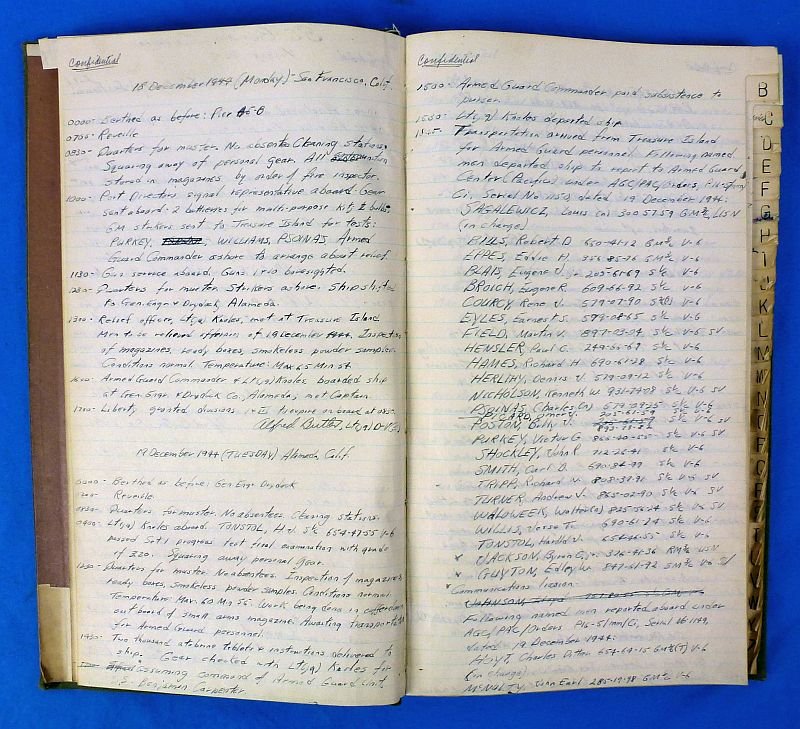 Confidential
18 December 1944 (Monday) - San Francisco, Calif.
0000- Berthed as before: Pier 45-B
0700- Reveille
0830- Quarters for muster. No absentees. Cleaning stations.
Squaring away of personal gear. All ammunition
stored in magazines by order of fire inspector.
1000- Port Directors signal representative aboard. Gear
sent aboard: 2 batteries for multi-purpose kit; 2 bulbs.
GM strikers sent to Treasure Island for tests:
PURKEY, WILLIAMS, PSOINAS. Armed
Guard Commander ashore to arrange about relief.
1130- Gun service aboard; Guns 1 + 10 boresighted.
1230- Quarters for muster. Strikers ashore. Ship shifted
to Gen. Engr. & Drydock, Alameda.
1300- Relief officer, Lt(jg) Knoles, met at Treasure Island.
Men to be relieved afternoon of 19 December 1944. Inspection
of magazines, ready boxes, smokeless powder samples.
Conditions normal. Temperature: Max 65 Min 54
1600- Armed Guard Commander & Lt(jg) Knoles boarded ship
at Gen. Engr. & Drydock Co, Alameda; met Captain.
1700- Liberty granted divisions I + II to expire on board at 0800.
Alfred Butler Lt(jg) D-V(S)
19 December 1944 (TUESDAY) Alameda, Calif.
0000- Berthed as before: Gen Engr Drydock
0700- Reveille.
0830- Quarters for muster. No absentees. Cleaning stations.
0900- Lt(jg) Knoles aboard. TONSTOL, H.J. S1c 654-47-55 V-6
passed Set 1 progress test final examination with grade
of 3.20. Squaring away personal gear.
1230- Quarters for muster. No absentees. Inspection of magazines,
ready boxes, smokeless powder samples. Conditions normal.
Temperature: Max. 60 Min 56. Work being done in cofferdam
outboard of small arms magazine. Awaiting transportation
for Armed Guard personnel.
1430- Two thousand atabrine tablets & instructions delivered to
ship. Gear checked with Lt(jg) Knoles for
assuming command of Armed Guard Unit,
S.S. Benjamin Carpenter.
Confidential
1500- Armed Guard Commander paid subsistence to
purser.
1550- Lt(jg) Knoles departed ship.
Transportation arrived from Treasure Island
for Armed Guard personnel. Following named
men departed ship to report to Armed Guard
Center (Pacific) under AGC/PAC/Orders,
Ci, Serial No. dated 19 December 1944:
SAGALEWICZ, Louis (n) 300 57 59 GM2c, USN
(in charge)
EILLS, Robert D. 650-41-12 GM3c V-6
EPPES, Eddie H. 356 85-76 GM3c V-6
BLAIS, Eugene J. 205-61-69 S1c V-6
BROICH, Eugene R. 609-66-92 S1c V-6
COURCY, Rene J. 579-07-90 V-6
EYLES, Earnest S. 579-08-65 S1c V-6
FIELD, Martin V. 897-03-04 S1c V-6 SV
HENSLER, Paul C. 249-65-69 S1c V-6
HAMES, Richard H 690-61-28 S1c V-6
HERLIHY, Dennis J. 579-09-12 S1c V-6
NICHOLSON, Kenneth W. 931-77-08 S1c V-6 SV
PSOINAS, Charles (n) 579-09-75 S1c V-6
PICARD, Omer J. 205-61-59 S1c V-6
POSTON, Billy J. S1c V-6 SV
PURKEY, Victor G. 865-40-55 S1c V-6 SV
SHOCKLEY, John R 712-26-91 S1c V-6
SMITH, Carl D. 690-84-99 S1c V-6
TRIPP, Richard N. 808-39-91 S1c V-6 SV
TURNER, Andrew J. 865-02-90 S1c V-6 SV
WALDWEEK, Walter (n) 825-56-24 S1c V-6 SV
WILLIS, Verse T. 690-61-74 S1c V-6
TONSTOL, Harold J. 654-46-55 S1c V-6
JACKSON, Byron G. 376-41-36 RM3c USN
GUYTON, Edley W. 847-61-72 SM3c V-6 SV
Communications liaison.
Following named men reported aboard under
AGC/PAC/Orders P16-5/mm/Ci, Serial No. 1149,
dated 19 December 1944:
HOYT, Charles Dutton 654-69-15 GM3c(T) V-6
(in charge)
McNULTY, John Earl 285-19-98 GM3c V-6
B
C
D
E
F
G
H
I
J
K
L
M